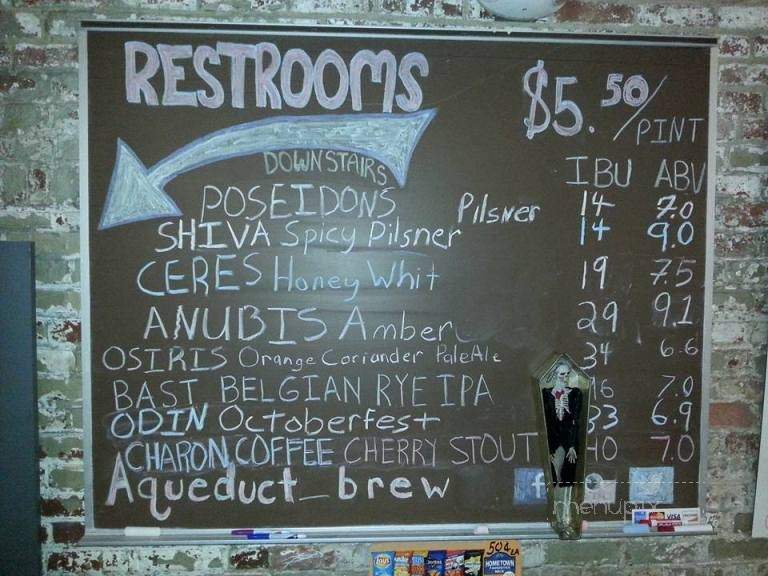 RESTROOMS
$5.50/PINT
DOWNSTAIRS
IBU ABV
POSEIDONS Pilsner 14 7.0
SHIVA Spicy Pilsner 14 9.0
CERES Honey Whit 19 7.5
ANUBIS Amber 29 9.1
OSIRIS Orange Coriander Pale Ale 34 6.6
BAST BELGIAN RYE IPA 7.0
ODIN Octoberfest 33 6.9
CHARON COFFEE CHERRY STOUT 40 7.0
Aqueduct_brew f
menupix
VISA
50¢ EA
Lay's Doritos
HOMETOWN